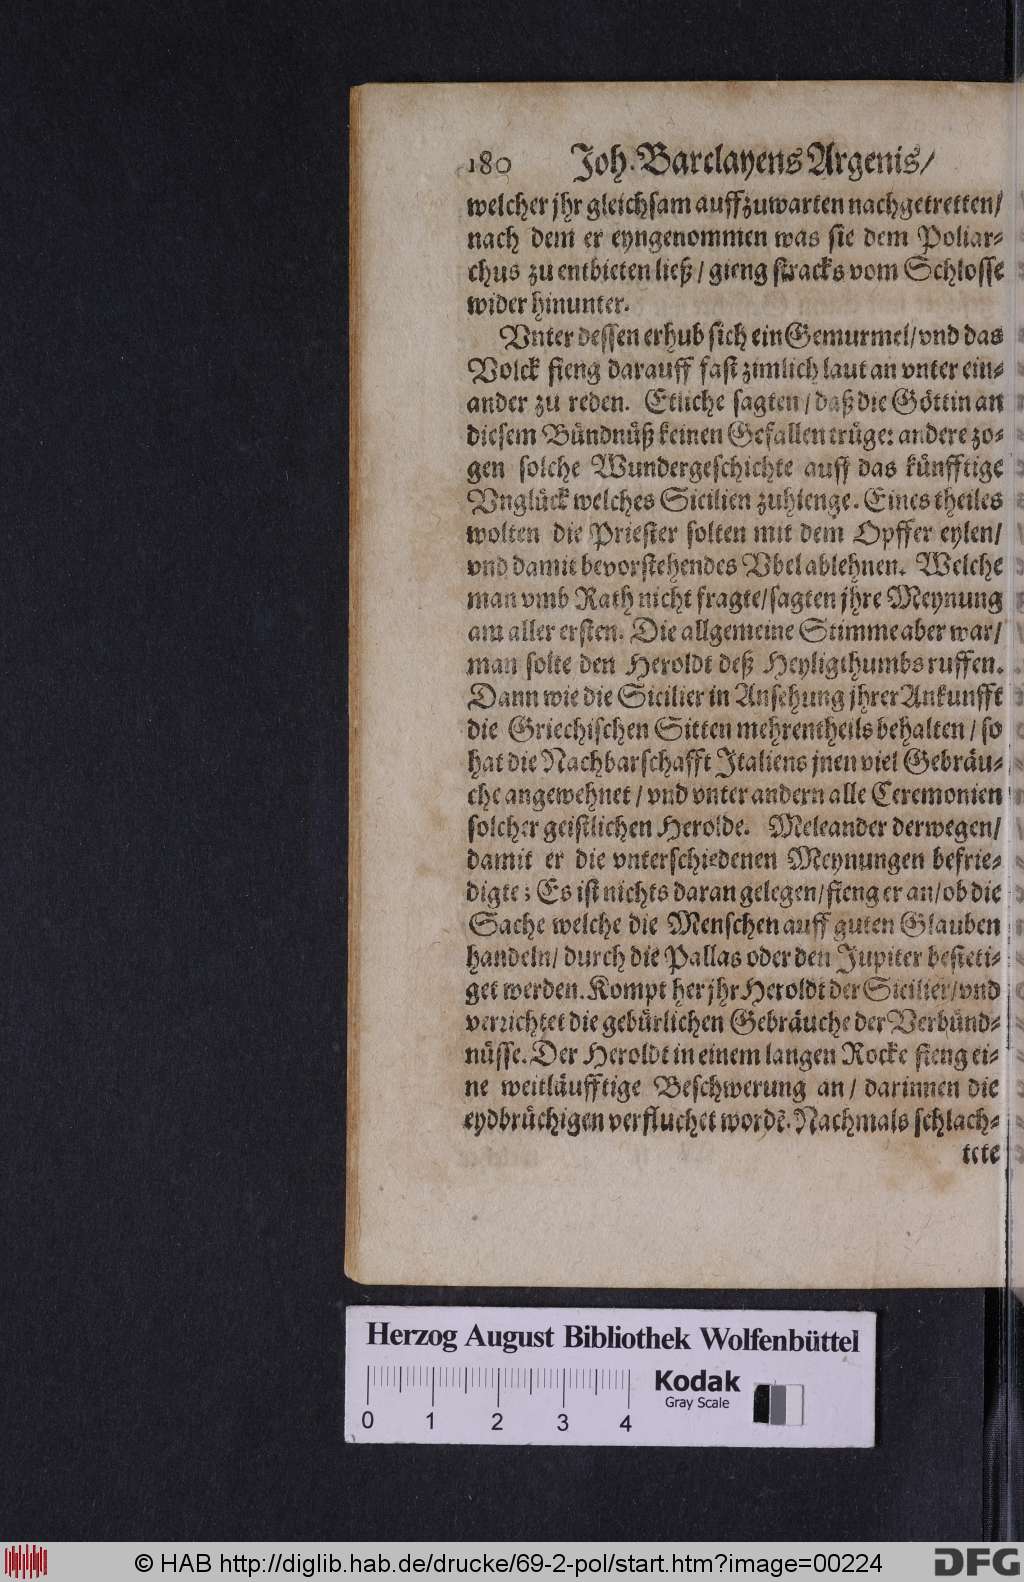 180 Joh. Barclayens Argenis/
welcher jhr gleichsam auffzuwarten nachgetretten/
nach dem er eyngenommen was sie dem Poliar-
chus zu entbieten ließ / gieng stracks vom Schlosse
wider hinunter.
Vnter dessen erhub sich ein Gemurmel/ vnd das
Volck fieng darauff fast zimlich laut an vnter ein-
ander zu reden. Etliche sagten / daß die Göttin an
diesem Bündnüß keinen Gefallen trüge: andere zo-
gen solche Wundergeschichte auff das künfftige
Vnglück welches Sicilien zuhienge. Eines theiles
wolten die Priester solten mit dem Opffer eylen/
vnd damit bevorstehendes Vbel ablehnen. Welche
man vmb Rath nicht fragte/ sagten jhre Meynung
am aller ersten. Die allgemeine Stimme aber war/
man solte den Heroldt deß Heyligthumbs ruffen.
Dann wie die Sicilier in Ansehung jhrer Ankunfft
die Griechischen Sitten mehrentheils behalten / so
hat die Nachbarschafft Italiens jnen viel Gebräu-
che angewehnet / vnd vnter andern alle Ceremonien
solcher geistlichen Herolde. Meleander derwegen/
damit er die vnterschiedenen Meynungen befrie-
digte; Es ist nichts daran gelegen/ fieng er an/ ob die
Sache welche die Menschen auff guten Glauben
handeln/ durch die Pallas oder den Jupiter besteti-
get werden. Kompt her jhr Heroldt der Sicilier/ vnd
verrichtet die gebürlichen Gebräuche der Verbünd-
nüsse. Der Heroldt in einem langen Rocke fieng ei-
ne weitläufftige Beschwerung an/ darinnen die
eydbrüchigen verfluchet wordē. Nachmals schlach-
tete
Herzog August Bibliothek Wolfenbüttel
0 1 2 3 4
Kodak
Gray Scale
© HAB http://diglib.hab.de/drucke/69-2-pol/start.htm?image=00224
DFG